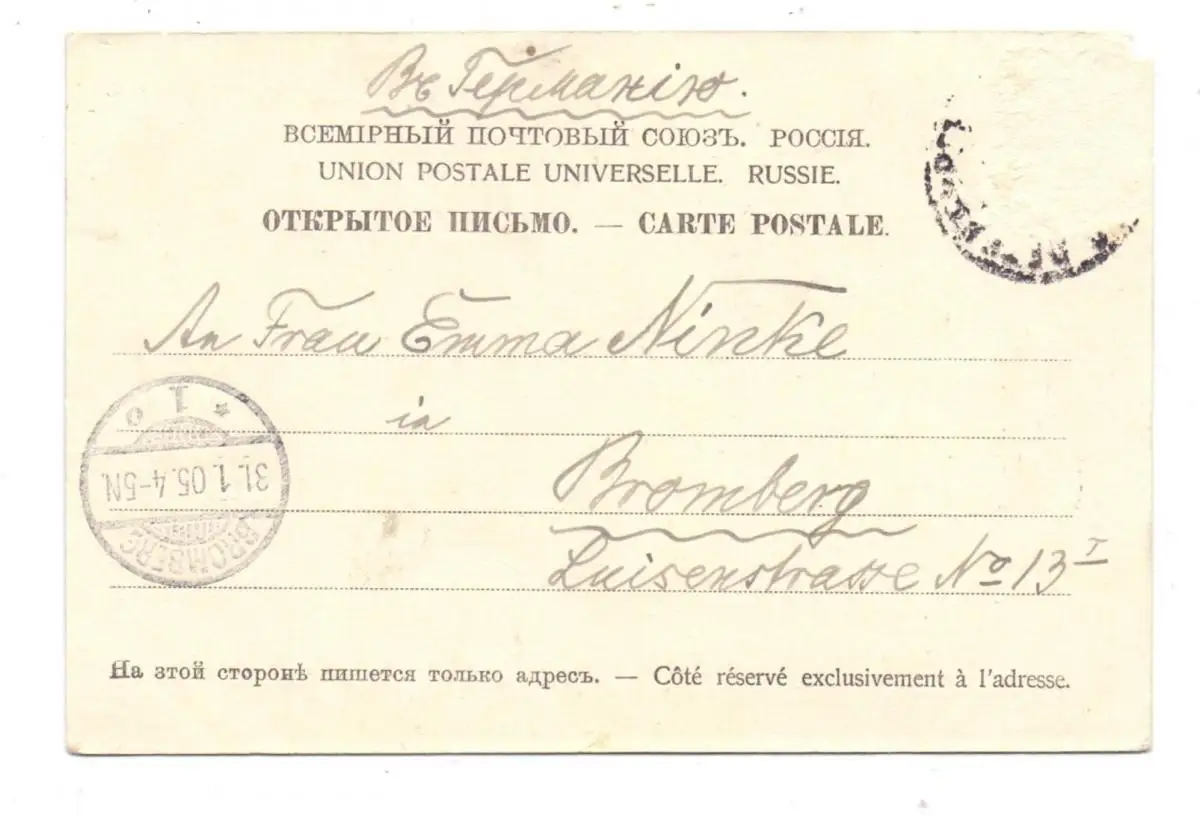 Въ Германію.
ВСЕМІРНЫЙ ПОЧТОВЫЙ СОЮЗЪ. РОССІЯ.
UNION POSTALE UNIVERSELLE. RUSSIE.
ОТКРЫТОЕ ПИСЬМО. — CARTE POSTALE.
An Frau Emma Ninke
in
Bromberg
Luisenstrasse No 13 I
* 1 o
31.1.05.4-5N.
BROMBERG
На этой сторонѣ пишется только адресъ. — Côté réservé exclusivement à l'adresse.